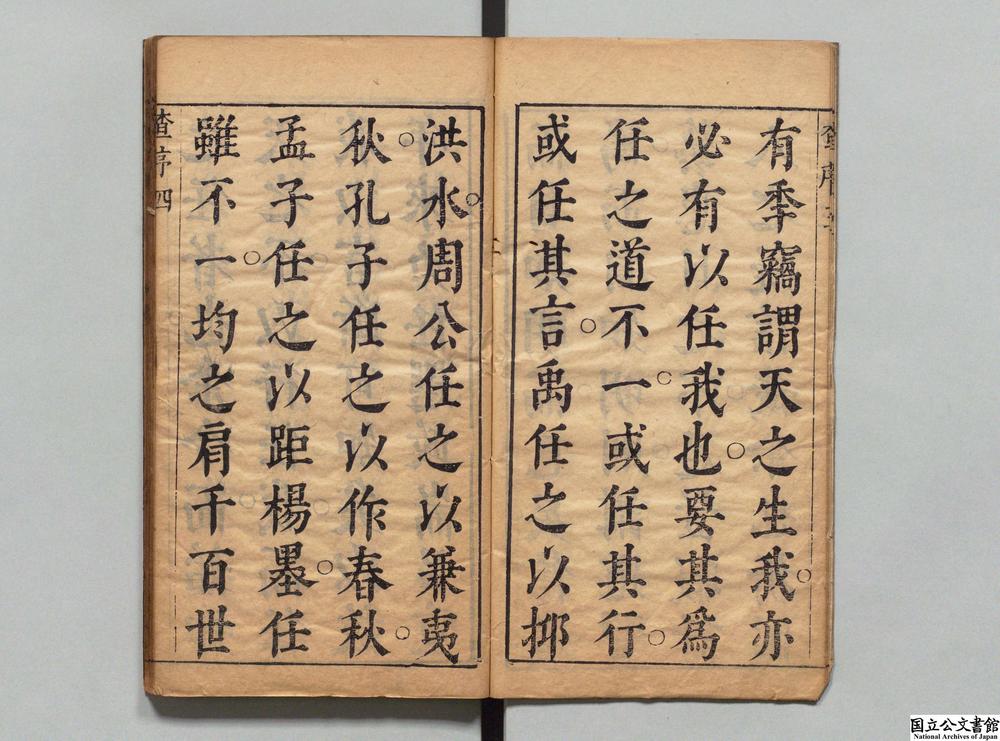 有秊竊謂天之生我亦
必有以任我也要其爲
任之道不一或任其行
或任其言禹任之以抑
洪水周公任之以兼夷
秋孔子任之以作春秋
孟子任之以距楊墨任
雖不一均之肩千百世
查序四
国立公文書館
National Archives of Japan